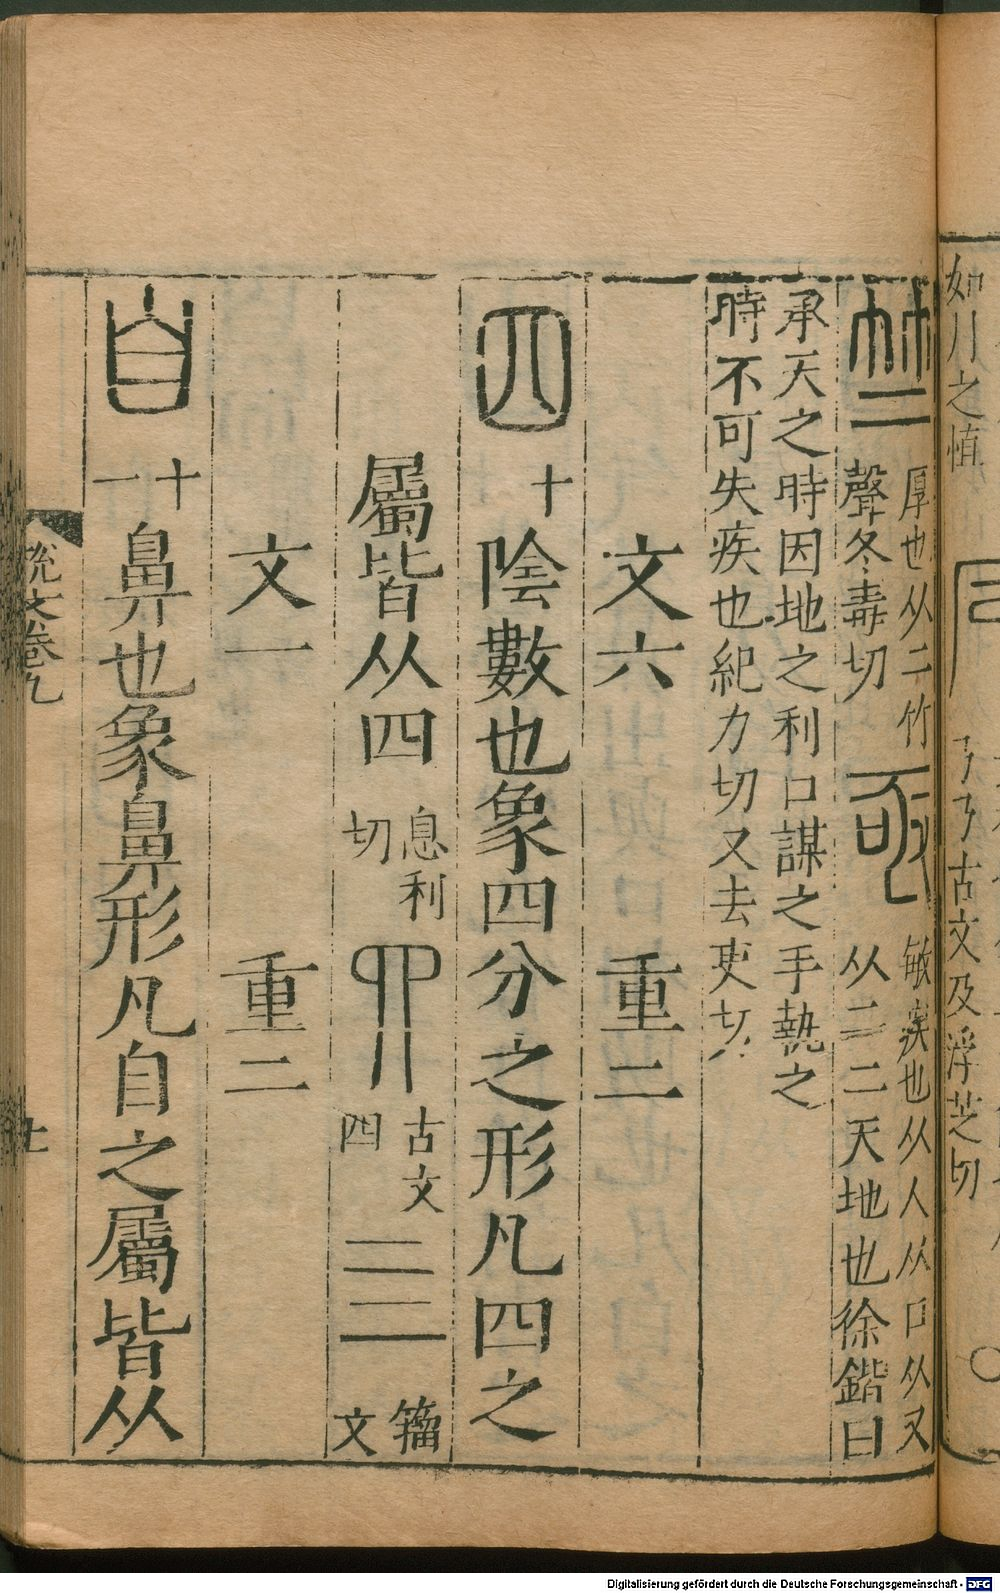 如川之慎
𠄎古文及浮芝切
竺 厚也从二竹
聲冬毒切
亟 敏疾也从人从口从又
从二二天地也徐鍇曰
承天之時因地之利口謀之手執之
時不可失疾也紀力切又去吏切
文六 重二
四 十 陰數也象四分之形凡四之
屬皆从四 息利
切
古文
四
亖 籀
文
文一 重二
自 十
一 鼻也象鼻形凡自之屬皆从
說文卷九
十
Digitalisierung gefördert durch die Deutsche Forschungsgemeinschaft - DFG